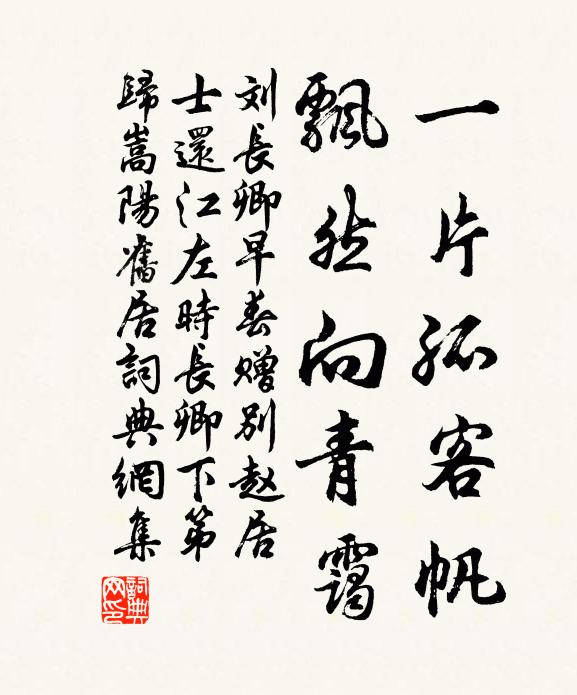 一片孤客帆
飄然向青靄
刘長卿早春赠別赵居
士還江左時長卿下第
歸嵩陽舊居詞典網集
詞典網印